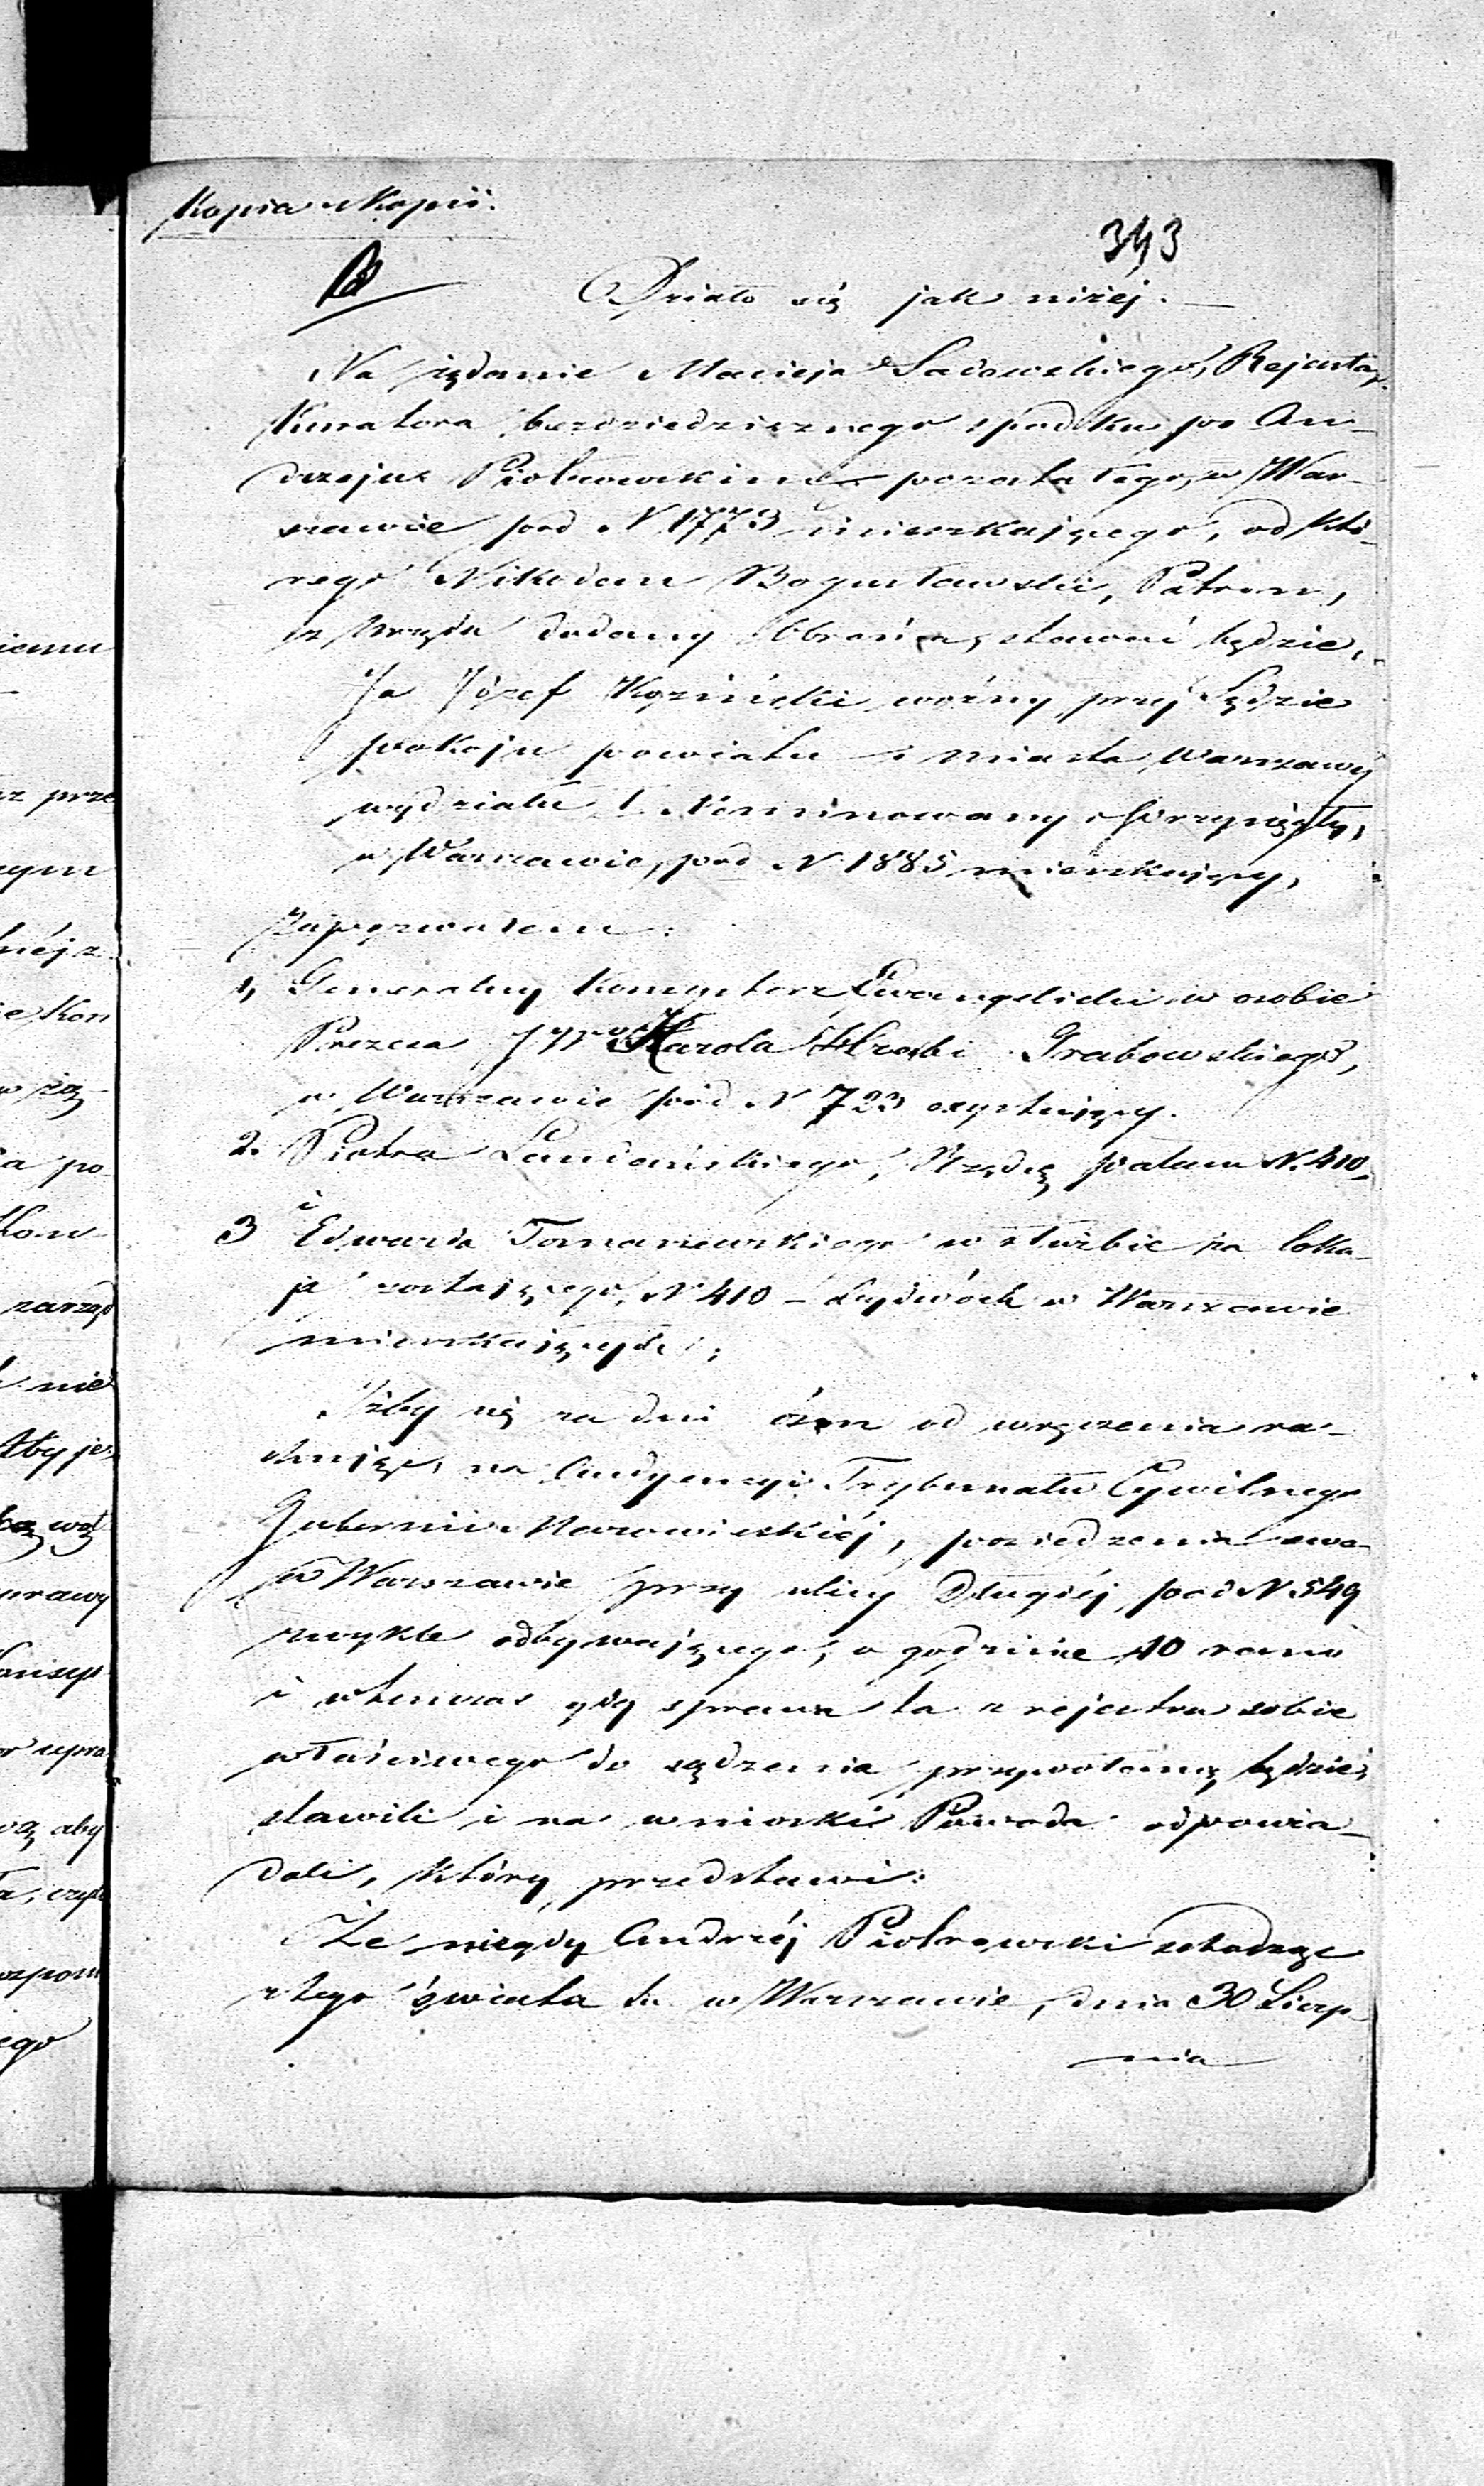 Kopia z Kopii.
343
Działo się jak niżej.
Na żądanie Macieja Sadowskiego, Rejenta,
Kuratora bezdziedzicznego spadku po An-
drzeju Piotrowskim pozostałego, w War-
szawie pod N 1773 mieszkającego, od któ-
rego Nikodem Bogusławski, Patron,
z Urzędu dodany Obrońca, stawać będzie,
Ja Józef woźny przy Sądzie
pokoju powiatu i miasta Warszawy
wydziału I. Nominowany i przysięgły,
w Warszawie, pod N 1885 mieszkający,
Zapozwałem:
1, Generalny Konsystorz Ewangelicki w osobie
Prezesa JW Karola Hrabi Grabowskiego,
w Warszawie pod N 723 exystujący.
2. Piotra Rządcę pałacu N. 410,
i
3 Edwarda Tomaszewskiego w służbie za loka-
ja zostającego, N 410 – Obydwóch w Warszawie
mieszkających;
Iżby się za dni ósm od wręczenia ra-
chując, na Audyencyi Trybunału Cywilnego
Gubernii Mazowieckiéj, posiedzenia swe
w Warszawie przy ulicy Długiéj pod N 549
zwykle odbywającego, o godzinie 10 rano
i wtenczas gdy sprawa ta z rejestru sobie
właściwego do sądzenia przywołaną będzie,
stawili i na wnioski Powoda odpowia-
dali, który przedstawi:
Że niegdy Andrzéj Piotrowski schodząc
z tego świata tu w Warszawie, dnia 30 Sierp
nia